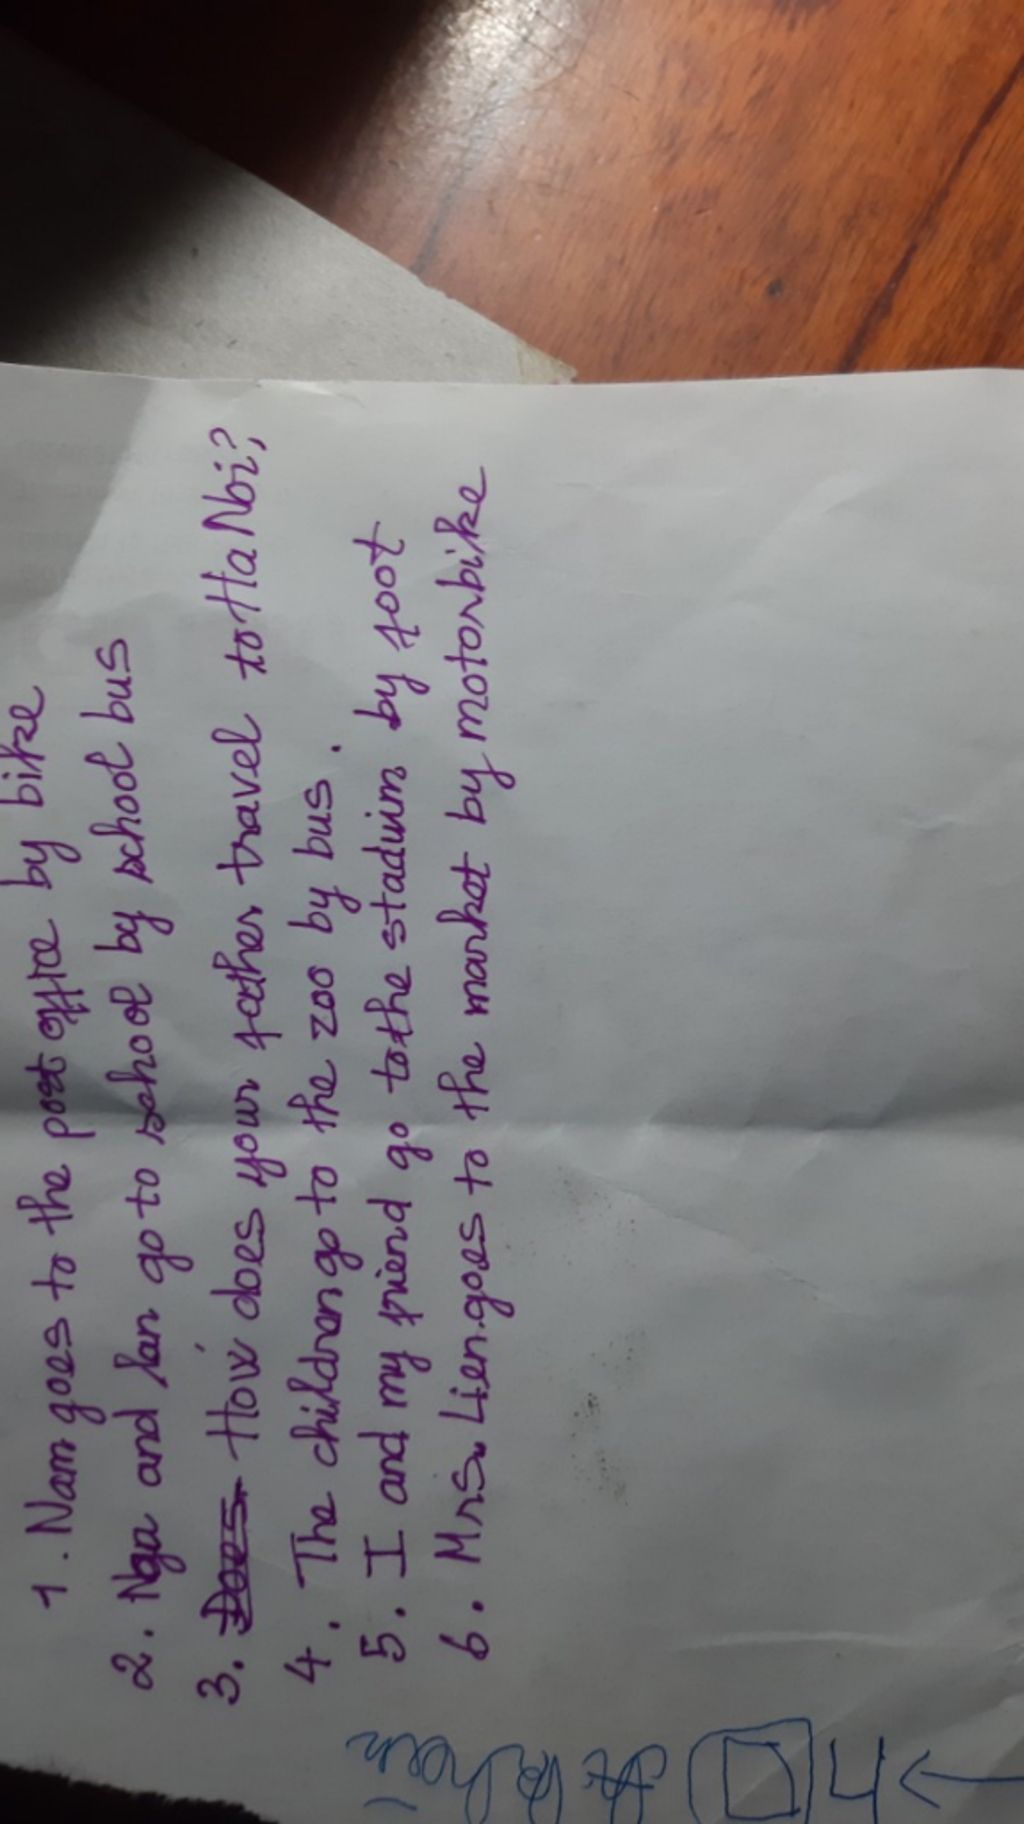 1. Nam goes to the post office by bike
2. Nga and Lan go to school by school bus
3. Does How does your father travel to Ha Nôi?
4. The children go to the zoo by bus.
5. I and my friend go to the staduim by foot
6. Mrs. Lien goes to the market by motorbike